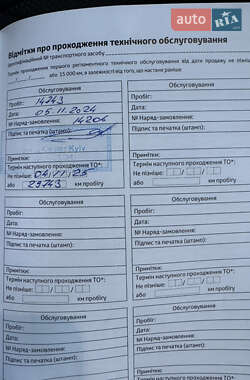 AUTO RIA
Відмітки про проходження технічного обслуговування
Ідентифікаційний № транспортного засобу
Термін проходження першого регламентного технічного обслуговування від дати продажу не пізні
або 15 000 км, в залежності від того, що настане раніше
Обслуговування
Пробіг: 14743
Дата: 05.11.2024
№ Наряд-замовлення: 14206
Підпис та печатка (штамп):
Примітки:
Термін наступного проходження ТО*:
Не пізніше: 04 11 25
або 29743 км пробігу
Обслуговування
Пробіг:
Дата:
№ Наряд-замовлення:
Підпис та печатка (штамп):
Примітки:
Термін наступного проходження ТО*
Не пізніше:
або км пробігу
Обслуговування
Пробіг:
Дата:
№ Наряд-замовлення:
Підпис та печатка (штамп):
Примітки:
Термін наступного проходження ТО*:
Не пізніше:
або км пробігу
Обслуговування
Пробіг:
Дата:
№ Наряд-замовлення:
Підпис та печатка (штамп):
Примітки:
Термін наступного проходження ТО*
Не пізніше:
або км пробігу
Обслуговування
Пробіг:
Дата:
№ Наряд-замовлення:
Підпис та печатка (штамп):
Обслуговування
Пробіг:
Дата:
№ Наряд-замовлення:
Підпис та печатка (штамп):